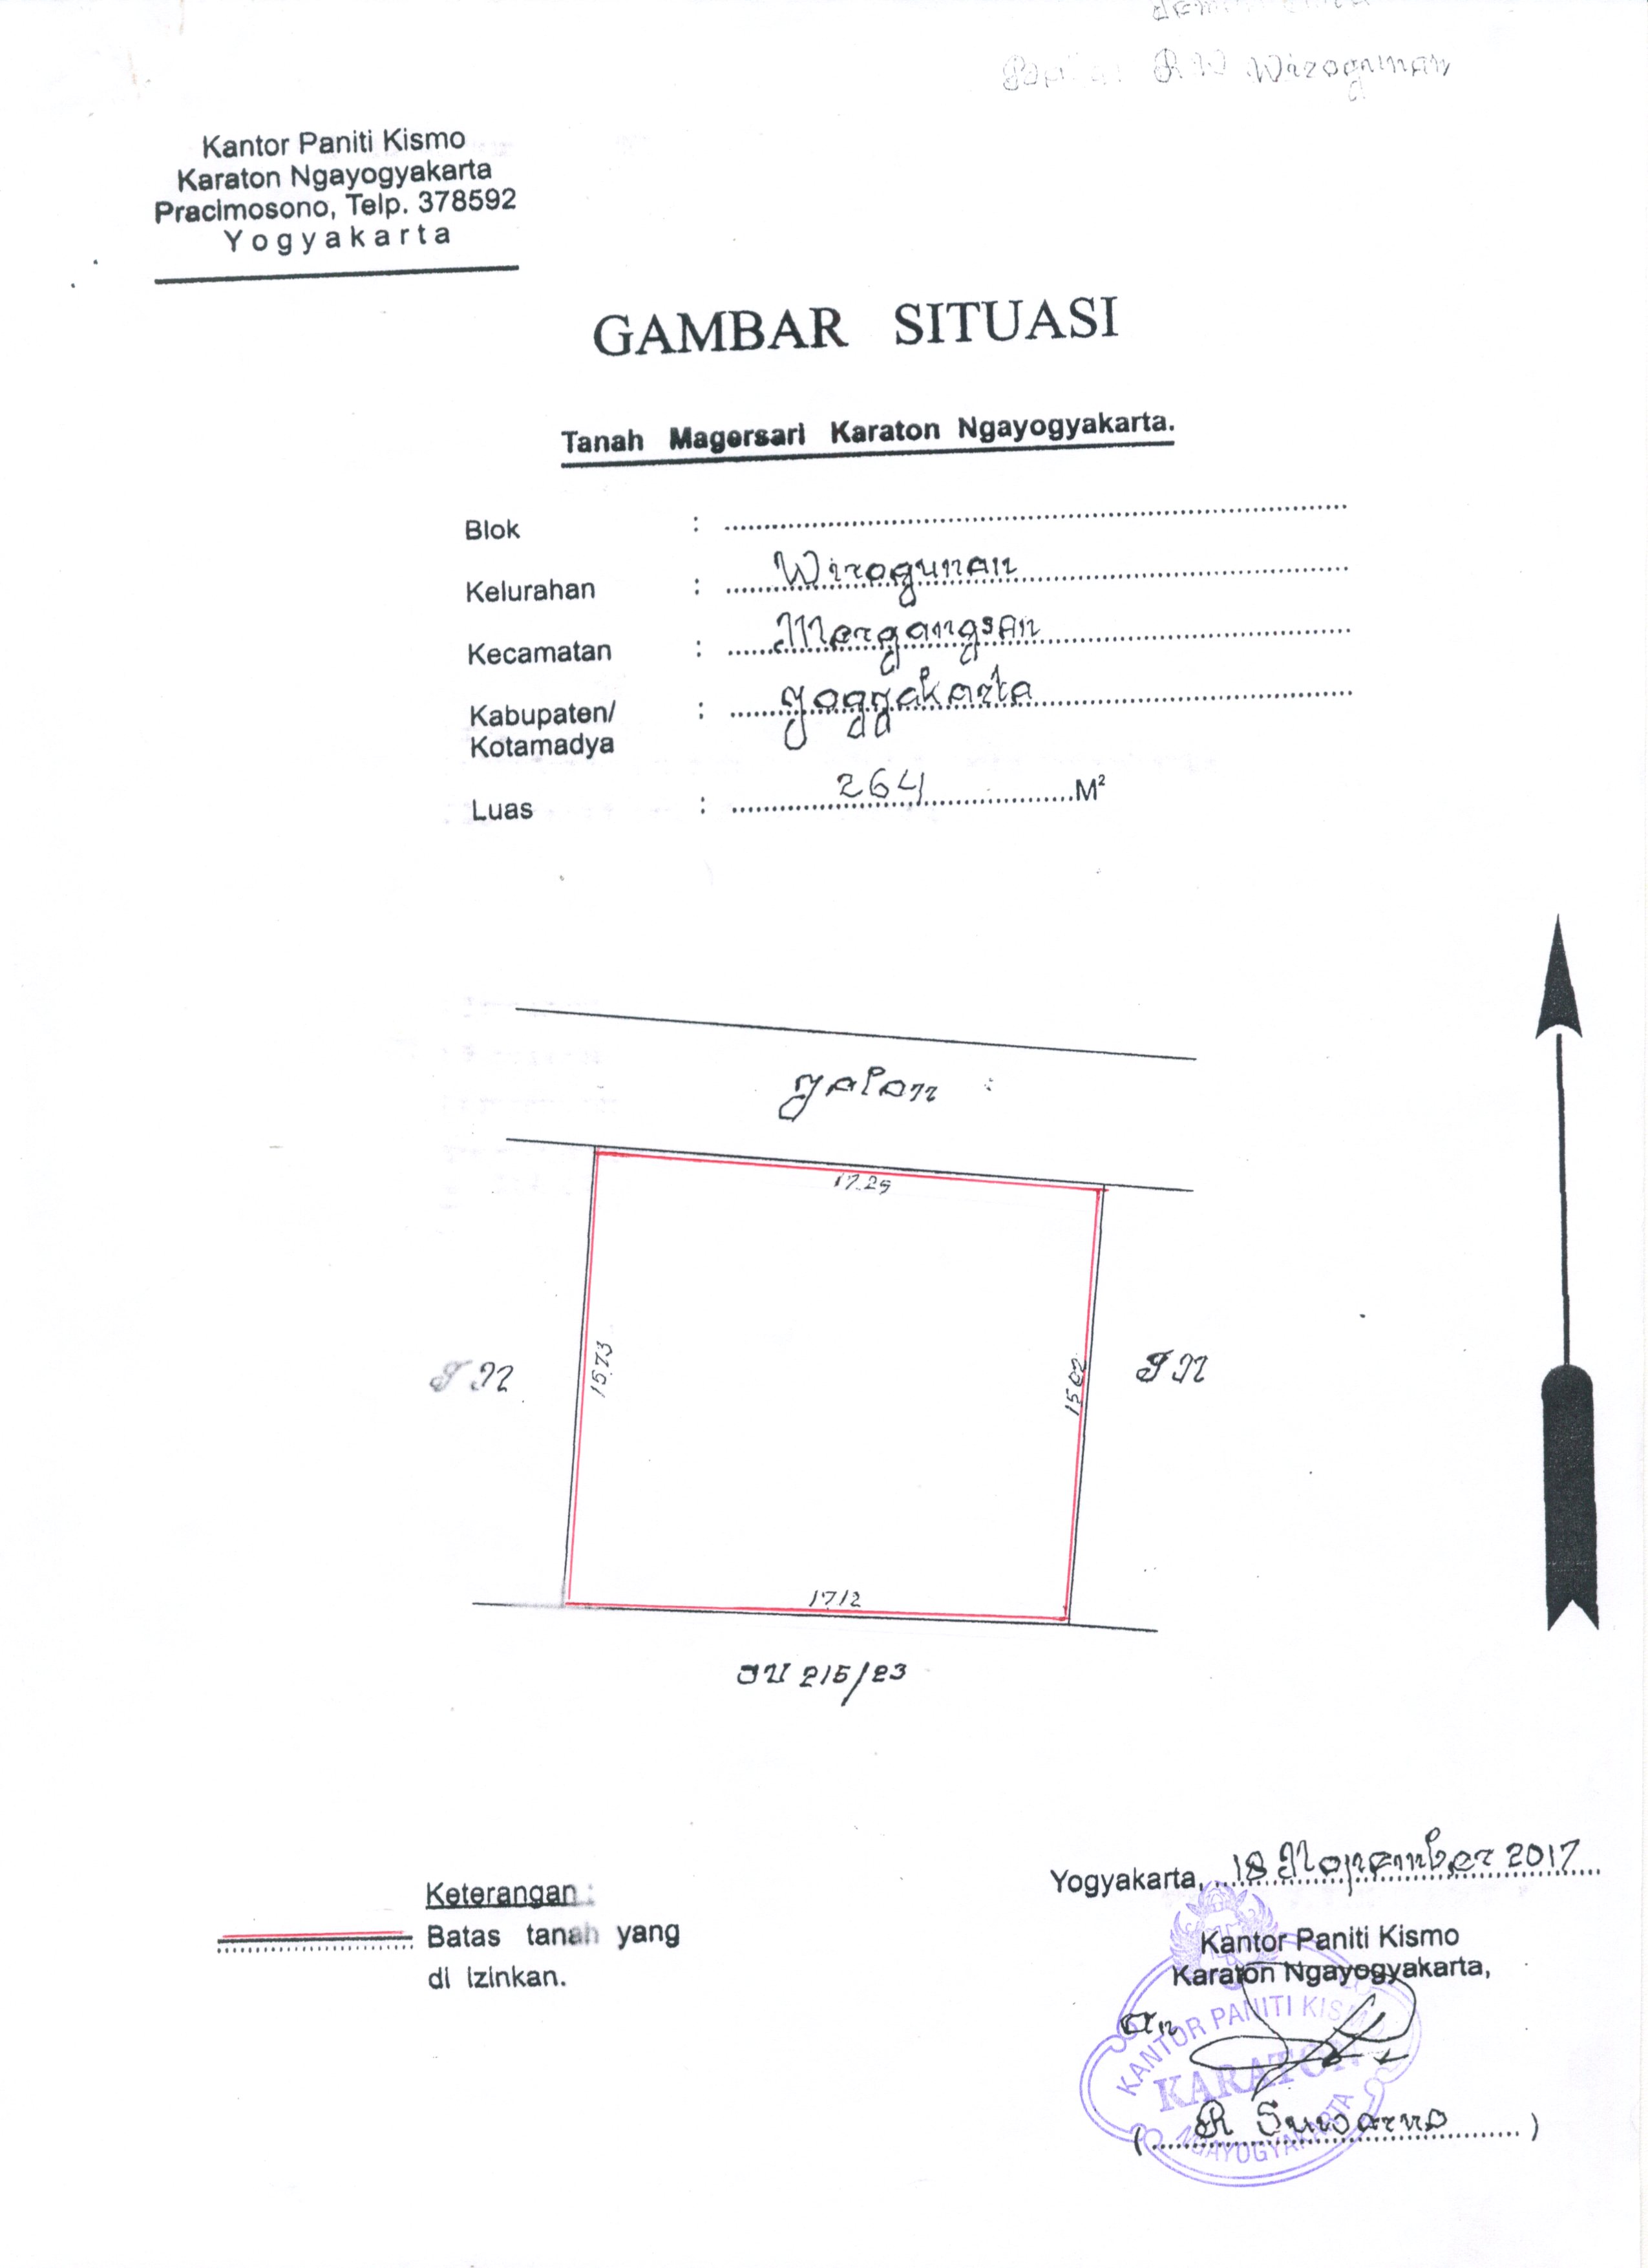 RW Wirogunan
Kantor Paniti Kismo
Karaton Ngayogyakarta
Pracimosono, Telp. 378592
Yogyakarta
GAMBAR SITUASI
Tanah Magersari Karaton Ngayogyakarta.
Blok :
Kelurahan : Wirogunan
Kecamatan : Mergangsan
Kabupaten/ : Yogyakarta
Kotamadya
Luas : 264 M²
Jalan
17.25
15.73
15.02
17.12
SU 215/23
Keterangan :
Batas tanah yang
di izinkan.
Yogyakarta, 18 Nopember 2017
Kantor Paniti Kismo
Karaton Ngayogyakarta,
An
KANTOR PANITI KISMO
KARATON
NGAYOGYAKARTA
( R Suwarno )